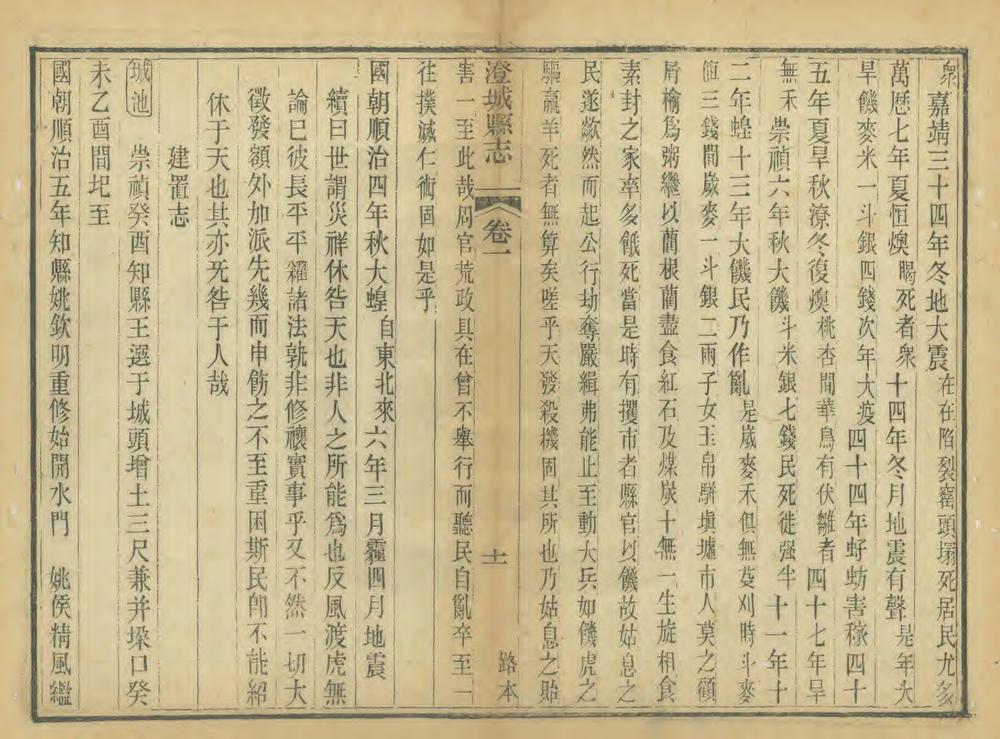 衆　嘉靖三十四年冬地大震在在陷裂窰頭塌死居民尤多
萬歷七年夏恒燠暍死者衆　十四年冬月地震有聲是年大
旱饑麥米一斗銀四錢次年大疫　四十四年蚜蚄害稼四十
五年夏旱秋潦冬復燠桃杏間華鳥有伏雛者　四十七年旱
無禾　崇禎六年秋大饑斗米銀七錢民死徙强半　十一年十
二年蝗十三年大饑民乃作亂是歲麥禾俱無芟刈時斗麥
値三錢間歲麥一斗銀二兩子女玉帛駢塡墟市人莫之顧
屑榆爲粥繼以藺根藺盡食紅石及煤炭十無一生旋相食
素封之家率多餓死當是時有攫市者縣官以饑故姑息之
民遂歘然而起公行刼奪嚴緝弗能止至動大兵如饑虎之
驅羸羊死者無算矣嗟乎天發殺機固其所也乃姑息之貽
害一至此哉周官荒政具在曾不舉行而聽民自亂卒至一
往撲滅仁術固如是乎
澄城縣志　卷一　十一　路本
國朝順治四年秋大蝗自東北來六年三月霾四月地震
續曰世謂災祥休咎天也非人之所能爲也反風渡虎無
論已彼長平平糶諸法孰非修禳實事乎又不然一切大
徵發額外加派先幾而申飭之不至重困斯民卽不能紹
休于天也其亦旡咎于人哉
建置志
城池　崇禎癸酉知縣王選于城頭增土三尺兼并垜口癸
未乙酉間圯至
國朝順治五年知縣姚欽明重修始開水門　姚侯精風鑑